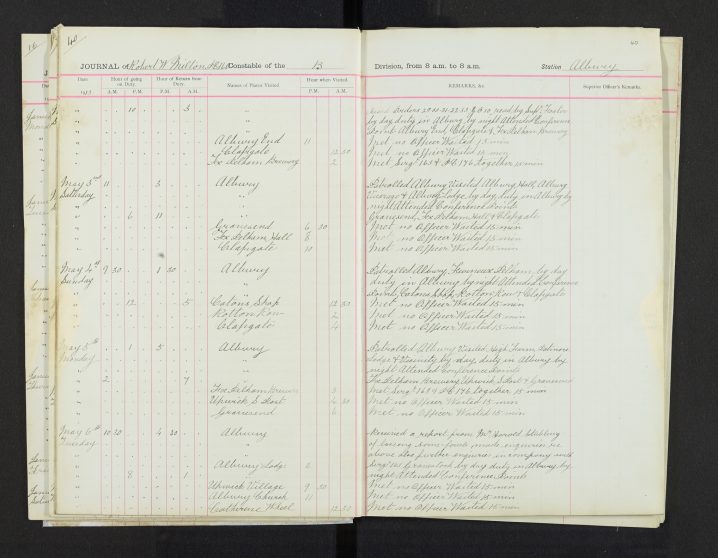 40
40
JOURNAL of Robert W. Milton Constable of the 13 Division, from 8 a.m. to 8 a.m. Station Albury
Date
Hour of going on Duty.
Hour of Return from Duty.
Names of Places Visited.
Hour when Visited.
REMARKS, &c.
Superior Officer's Remarks.
A.M. P.M. P.M. A.M. P.M. A.M.
10 3 read by Supt. Foster
by day duty in Albury by night Attended Conference
Points Albury End, Clapgate & Fx Pelham Brewery
Albury End 11 Met no Officer Waited 15 min
Clapgate 12 30 Met no Officer Waited 15 min
Fx Pelham Brewery 2 Met Sergt together 15 min
May 3rd 11 3 Albury Patrolled Albury Visited Albury Hall, Albury
Saturday Vicarage & Albury Lodge by day, duty in Albury by
night Attended Conference Points
6 11 Gravesend, Fx Pelham Hall & Clapgate
Gravesend 6 30 Met no Officer Waited 15 min
Fx Pelham Hall 8 Met no Officer Waited 15 min
Clapgate 10 Met no Officer Waited 15 min
May 4th 9 30 1 30 Albury Patrolled Albury, Furneux Pelham, by day
Sunday duty in Albury by night Attended Conference
Points Colons Shop, Rotton Row & Clapgate
12 5 Colons Shop 12 30 Met no Officer Waited 15 min
Rotton Row 2 Met no Officer Waited 15 min
Clapgate 4 Met no Officer Waited 15 min
May 5th 1 5 Albury Patrolled Albury Visited High Farm, Patmore
Monday Lodge & Vicinity by day, duty in Albury by
night Attended Conference Points
2 7 Fx Pelham Brewery, Upwick & Gravesend
Fx Pelham Brewery 3 Met Sergt together 15 min
Upwick 4 30 Met no Officer Waited 15 min
Gravesend 6 Met no Officer Waited 15 min
May 6th 10 30 4 30 Albury Received a report from Mr Harold
Tuesday of loosing some fowls made enquiries re
above also further enquiries in company with
Albury Lodge 2 Sergt by day duty in Albury by
8 1 night Attended Conference Points
Upwick Village 9 30 Met no Officer Waited 15 min
Albury Church 11 Met no Officer Waited 15 min
Catherine Wheel 12 30 Met no Officer Waited 15 min